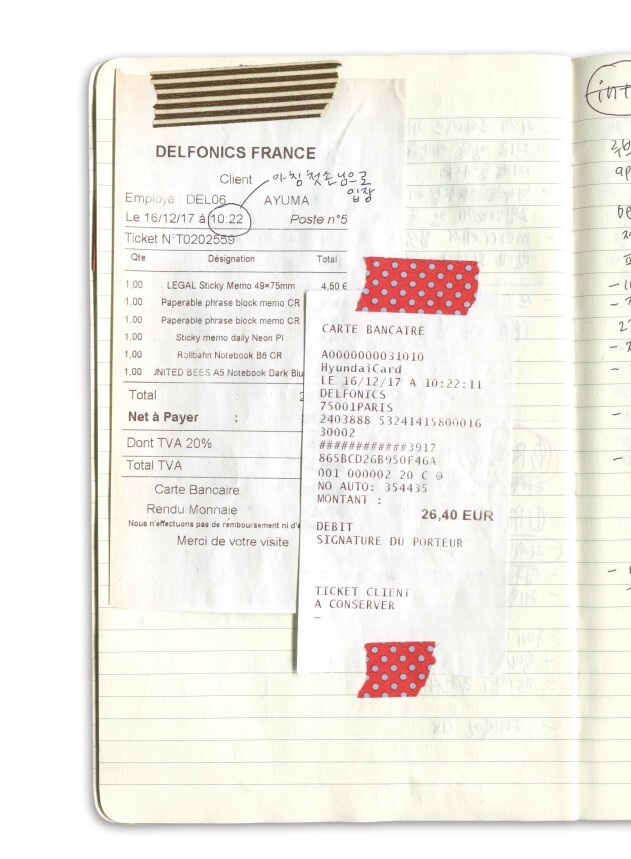 DELFONICS FRANCE
Client
아침 첫 손님으로
입장
Employé : DEL06 AYUMA
Le 16/12/17 à 10:22 Poste n°5
Ticket N°T0202559
Qte Désignation Total
1,00 LEGAL Sticky Memo 49×75mm 4,50 €
1,00 Paperable phrase block memo CR
1,00 Paperable phrase block memo CR
1,00 Sticky memo daily Neon PI
1,00 Rollbahn Notebook B6 CR
1,00 UNITED BEES A5 Notebook Dark Blu
Total 2
Net à Payer :
Dont TVA 20%
Total TVA
Carte Bancaire
Rendu Monnaie
Nous n'effectuons pas de remboursement ni d'é
Merci de votre visite
CARTE BANCAIRE
A0000000031010
HyundaiCard
LE 16/12/17 A 10:22:11
DELFONICS
75001PARIS
2403888 53241415800016
30002
############3917
865BCD26B950F46A
001 000002 20 C @
NO AUTO: 354435
MONTANT :
26,40 EUR
DEBIT
SIGNATURE DU PORTEUR
TICKET CLIENT
A CONSERVER
int